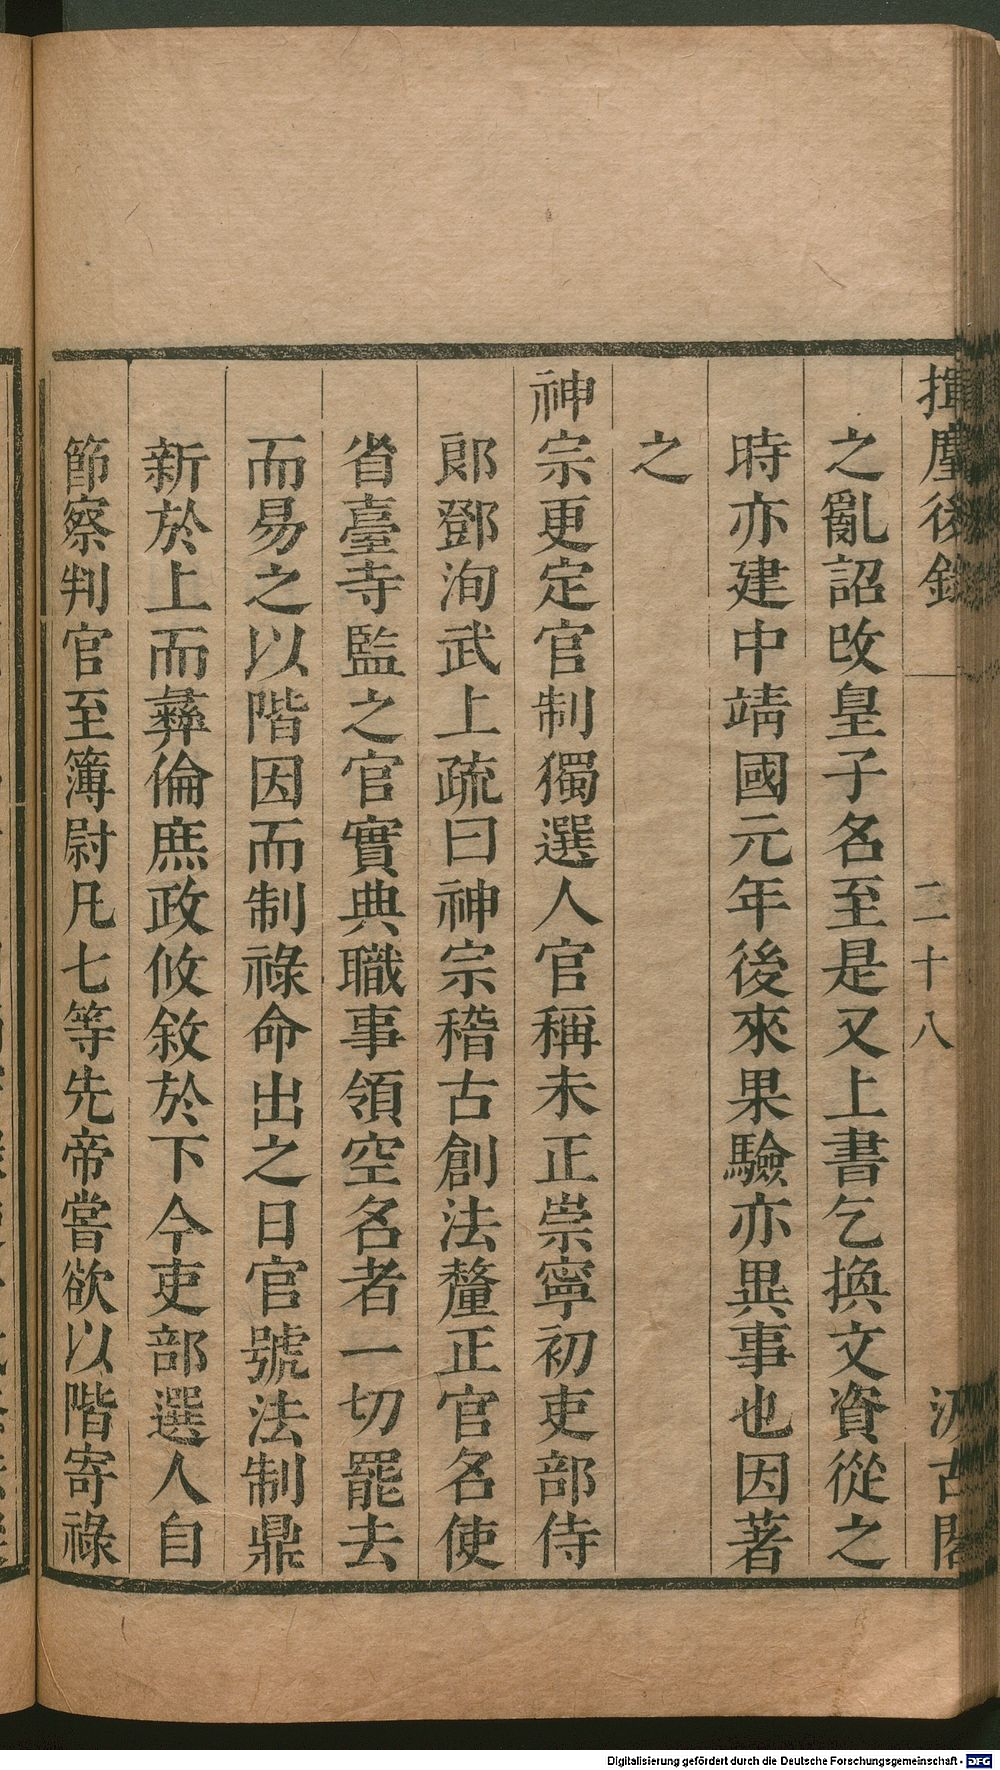 揮麈後錄
二十八
汲古閣
之亂詔改皇子名至是又上書乞換文資從之
時亦建中靖國元年後來果驗亦異事也因著
之
神宗更定官制獨選人官稱未正崇寧初吏部侍
郎鄧洵武上疏曰神宗稽古創法釐正官名使
省臺寺監之官實典職事領空名者一切罷去
而易之以階因而制祿命出之日官號法制鼎
新於上而彝倫庶政攸敘於下今吏部選人自
節察判官至簿尉凡七等先帝嘗欲以階寄祿
Digitalisierung gefördert durch die Deutsche Forschungsgemeinschaft - DFG